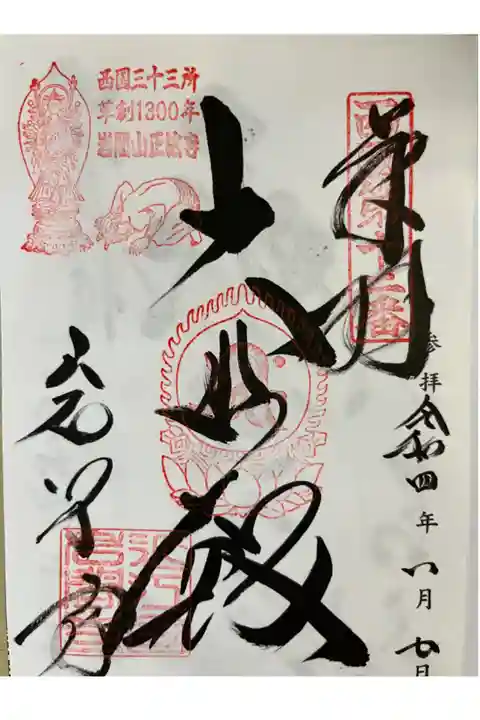 奉拝
西国第十二番
参拝 令和四年八月 日
大悲殿
西国三十三所
草創1300年
岩間山正法寺
岩間寺